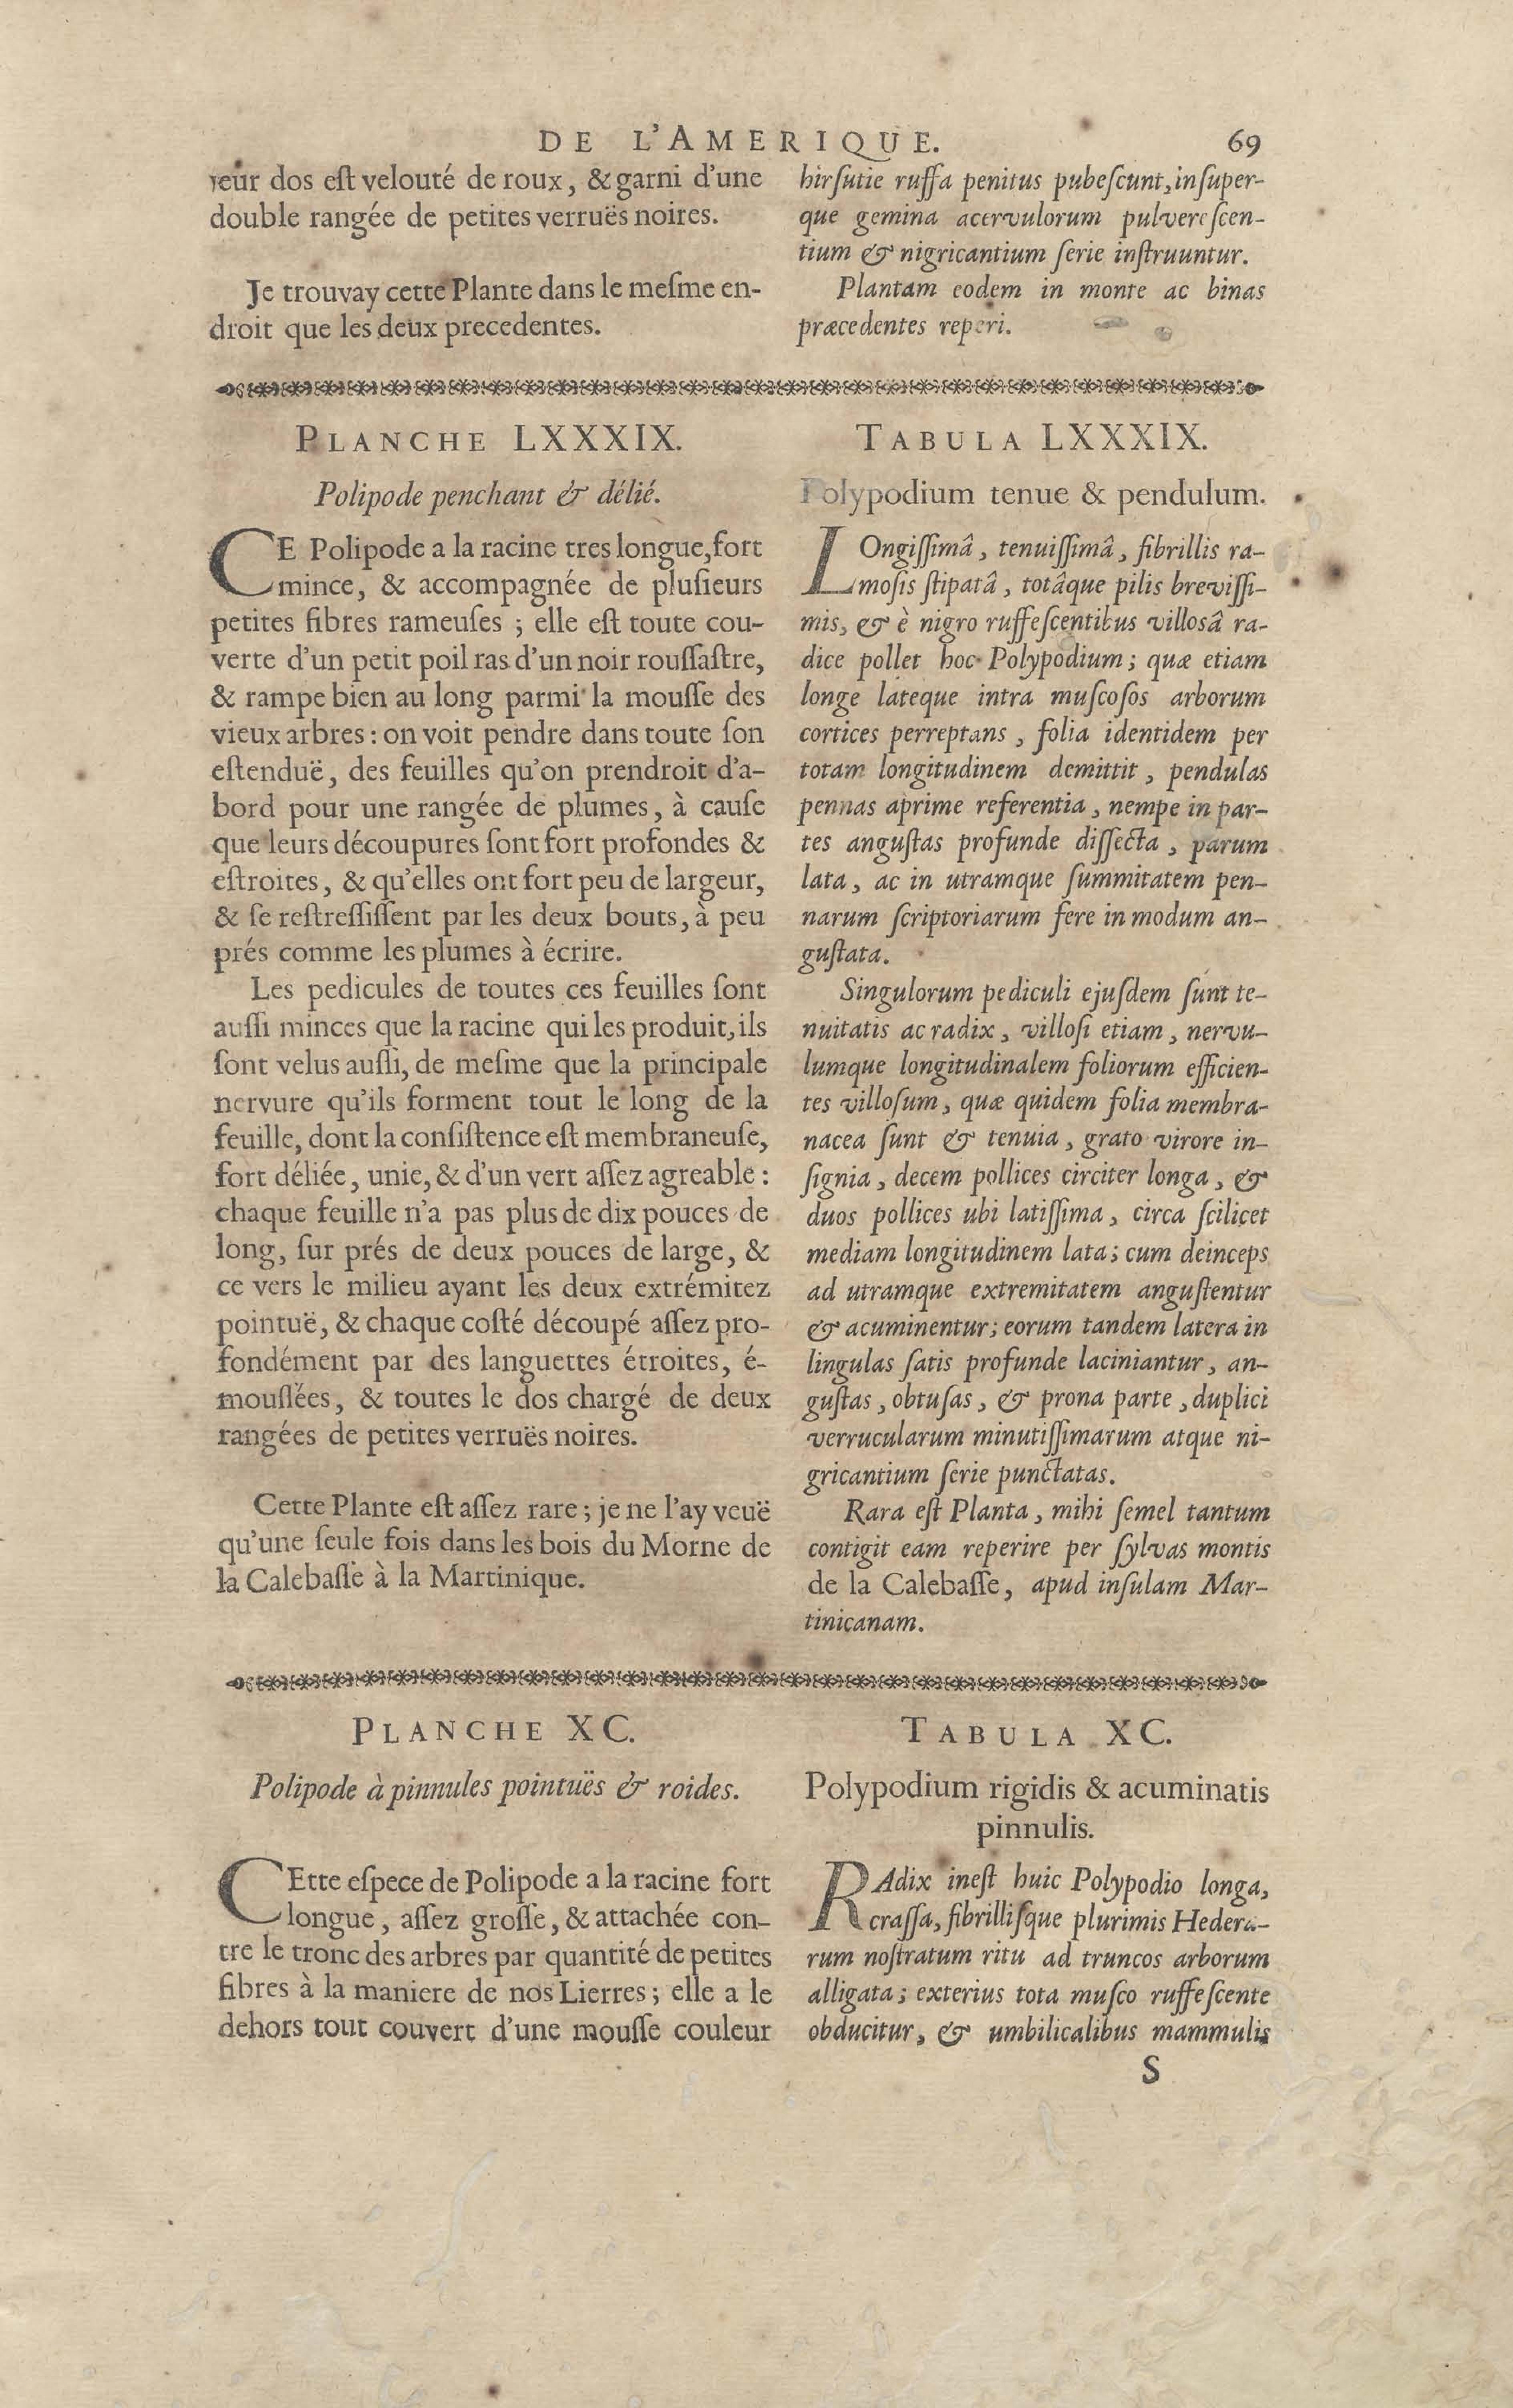 DE L'AMERIQUE. 69
leur dos eſt velouté de roux, & garni d'une
double rangée de petites verruës noires.
Je trouvay cette Plante dans le meſme en-
droit que les deux precedentes.
hirſutie ruffa penitus pubeſcunt, inſuper-
que gemina acervulorum pulvereſcen-
tium & nigricantium ſerie inſtruuntur.
Plantam eodem in monte ac binas
præcedentes reperi.
PLANCHE LXXXIX.
Polipode penchant & délié.
CE Polipode a la racine tres longue, fort
mince, & accompagnée de pluſieurs
petites fibres rameuſes ; elle eſt toute cou-
verte d'un petit poil ras d'un noir rouſſaſtre,
& rampe bien au long parmi la mouſſe des
vieux arbres : on voit pendre dans toute ſon
eſtenduë, des feuilles qu'on prendroit d'a-
bord pour une rangée de plumes, à cauſe
que leurs découpures ſont fort profondes &
eſtroites, & qu'elles ont fort peu de largeur,
& ſe reſtreſſiſſent par les deux bouts, à peu
prés comme les plumes à écrire.
Les pedicules de toutes ces feuilles ſont
auſſi minces que la racine qui les produit, ils
ſont velus auſſi, de meſme que la principale
nervure qu'ils forment tout le long de la
feuille, dont la conſiſtence eſt membraneuſe,
fort déliée, unie, & d'un vert aſſez agreable :
chaque feuille n'a pas plus de dix pouces de
long, ſur prés de deux pouces de large, &
ce vers le milieu ayant les deux extrémitez
pointuë, & chaque coſté découpé aſſez pro-
fondément par des languettes étroites, é-
mouſſées, & toutes le dos chargé de deux
rangées de petites verruës noires.
Cette Plante eſt aſſez rare ; je ne l'ay veuë
qu'une ſeule fois dans les bois du Morne de
la Calebaſſe à la Martinique.
TABULA LXXXIX.
Polypodium tenue & pendulum.
LOngiſſimâ, tenuiſſimâ, fibrillis ra-
moſis ſtipatâ, totâque pilis breviſſi-
mis, & è nigro ruffeſcentibus villoſâ ra-
dice pollet hoc Polypodium ; quæ etiam
longe lateque intra muſcoſos arborum
cortices perreptans, folia identidem per
totam longitudinem demittit, pendulas
pennas aprime referentia, nempe in par-
tes anguſtas profunde diſſecta, parum
lata, ac in utramque ſummitatem pen-
narum ſcriptoriarum fere in modum an-
guſtata.
Singulorum pediculi ejuſdem ſunt te-
nuitatis ac radix, villoſi etiam, nervu-
lumque longitudinalem foliorum efficien-
tes villoſum, quæ quidem folia membra-
nacea ſunt & tenuia, grato virore in-
ſignia, decem pollices circiter longa, &
duos pollices ubi latiſſima, circa ſcilicet
mediam longitudinem lata ; cum deinceps
ad utramque extremitatem anguſtentur
& acuminentur ; eorum tandem latera in
lingulas ſatis profunde laciniantur, an-
guſtas, obtuſas, & prona parte, duplici
verrucularum minutiſſimarum atque ni-
gricantium ſerie punctatas.
Rara eſt Planta, mihi ſemel tantum
contigit eam reperire per ſylvas montis
de la Calebaſſe, apud inſulam Mar-
tinicanam.
PLANCHE XC.
Polipode à pinnules pointuës & roides.
CEtte eſpece de Polipode a la racine fort
longue, aſſez groſſe, & attachée con-
tre le tronc des arbres par quantité de petites
fibres à la maniere de nos Lierres ; elle a le
dehors tout couvert d'une mouſſe couleur
TABULA XC.
Polypodium rigidis & acuminatis
pinnulis.
RAdix ineſt huic Polypodio longa,
craſſa, fibrilliſque plurimis Hedera-
rum noſtratum ritu ad truncos arborum
alligata ; exterius tota muſco ruffeſcente
obducitur, & umbilicalibus mammulis
S